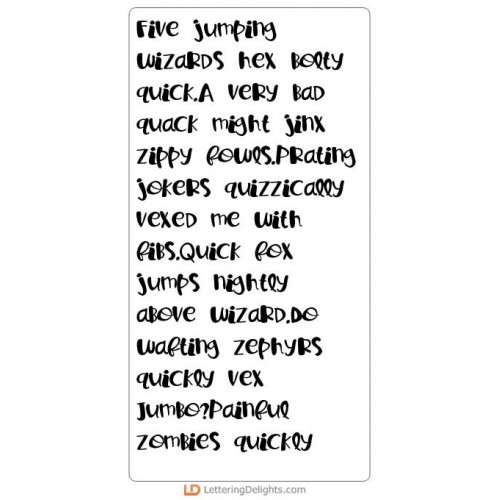 Five jumping
wizards hex bolty
quick.A very bad
quack might jinx
zippy fowls.Prating
jokers quizzically
vexed me with
fibs.Quick fox
jumps nightly
above wizard.Do
wafting zephyrs
quickly vex
Jumbo?Painful
zombies quickly
LD LetteringDelights.com